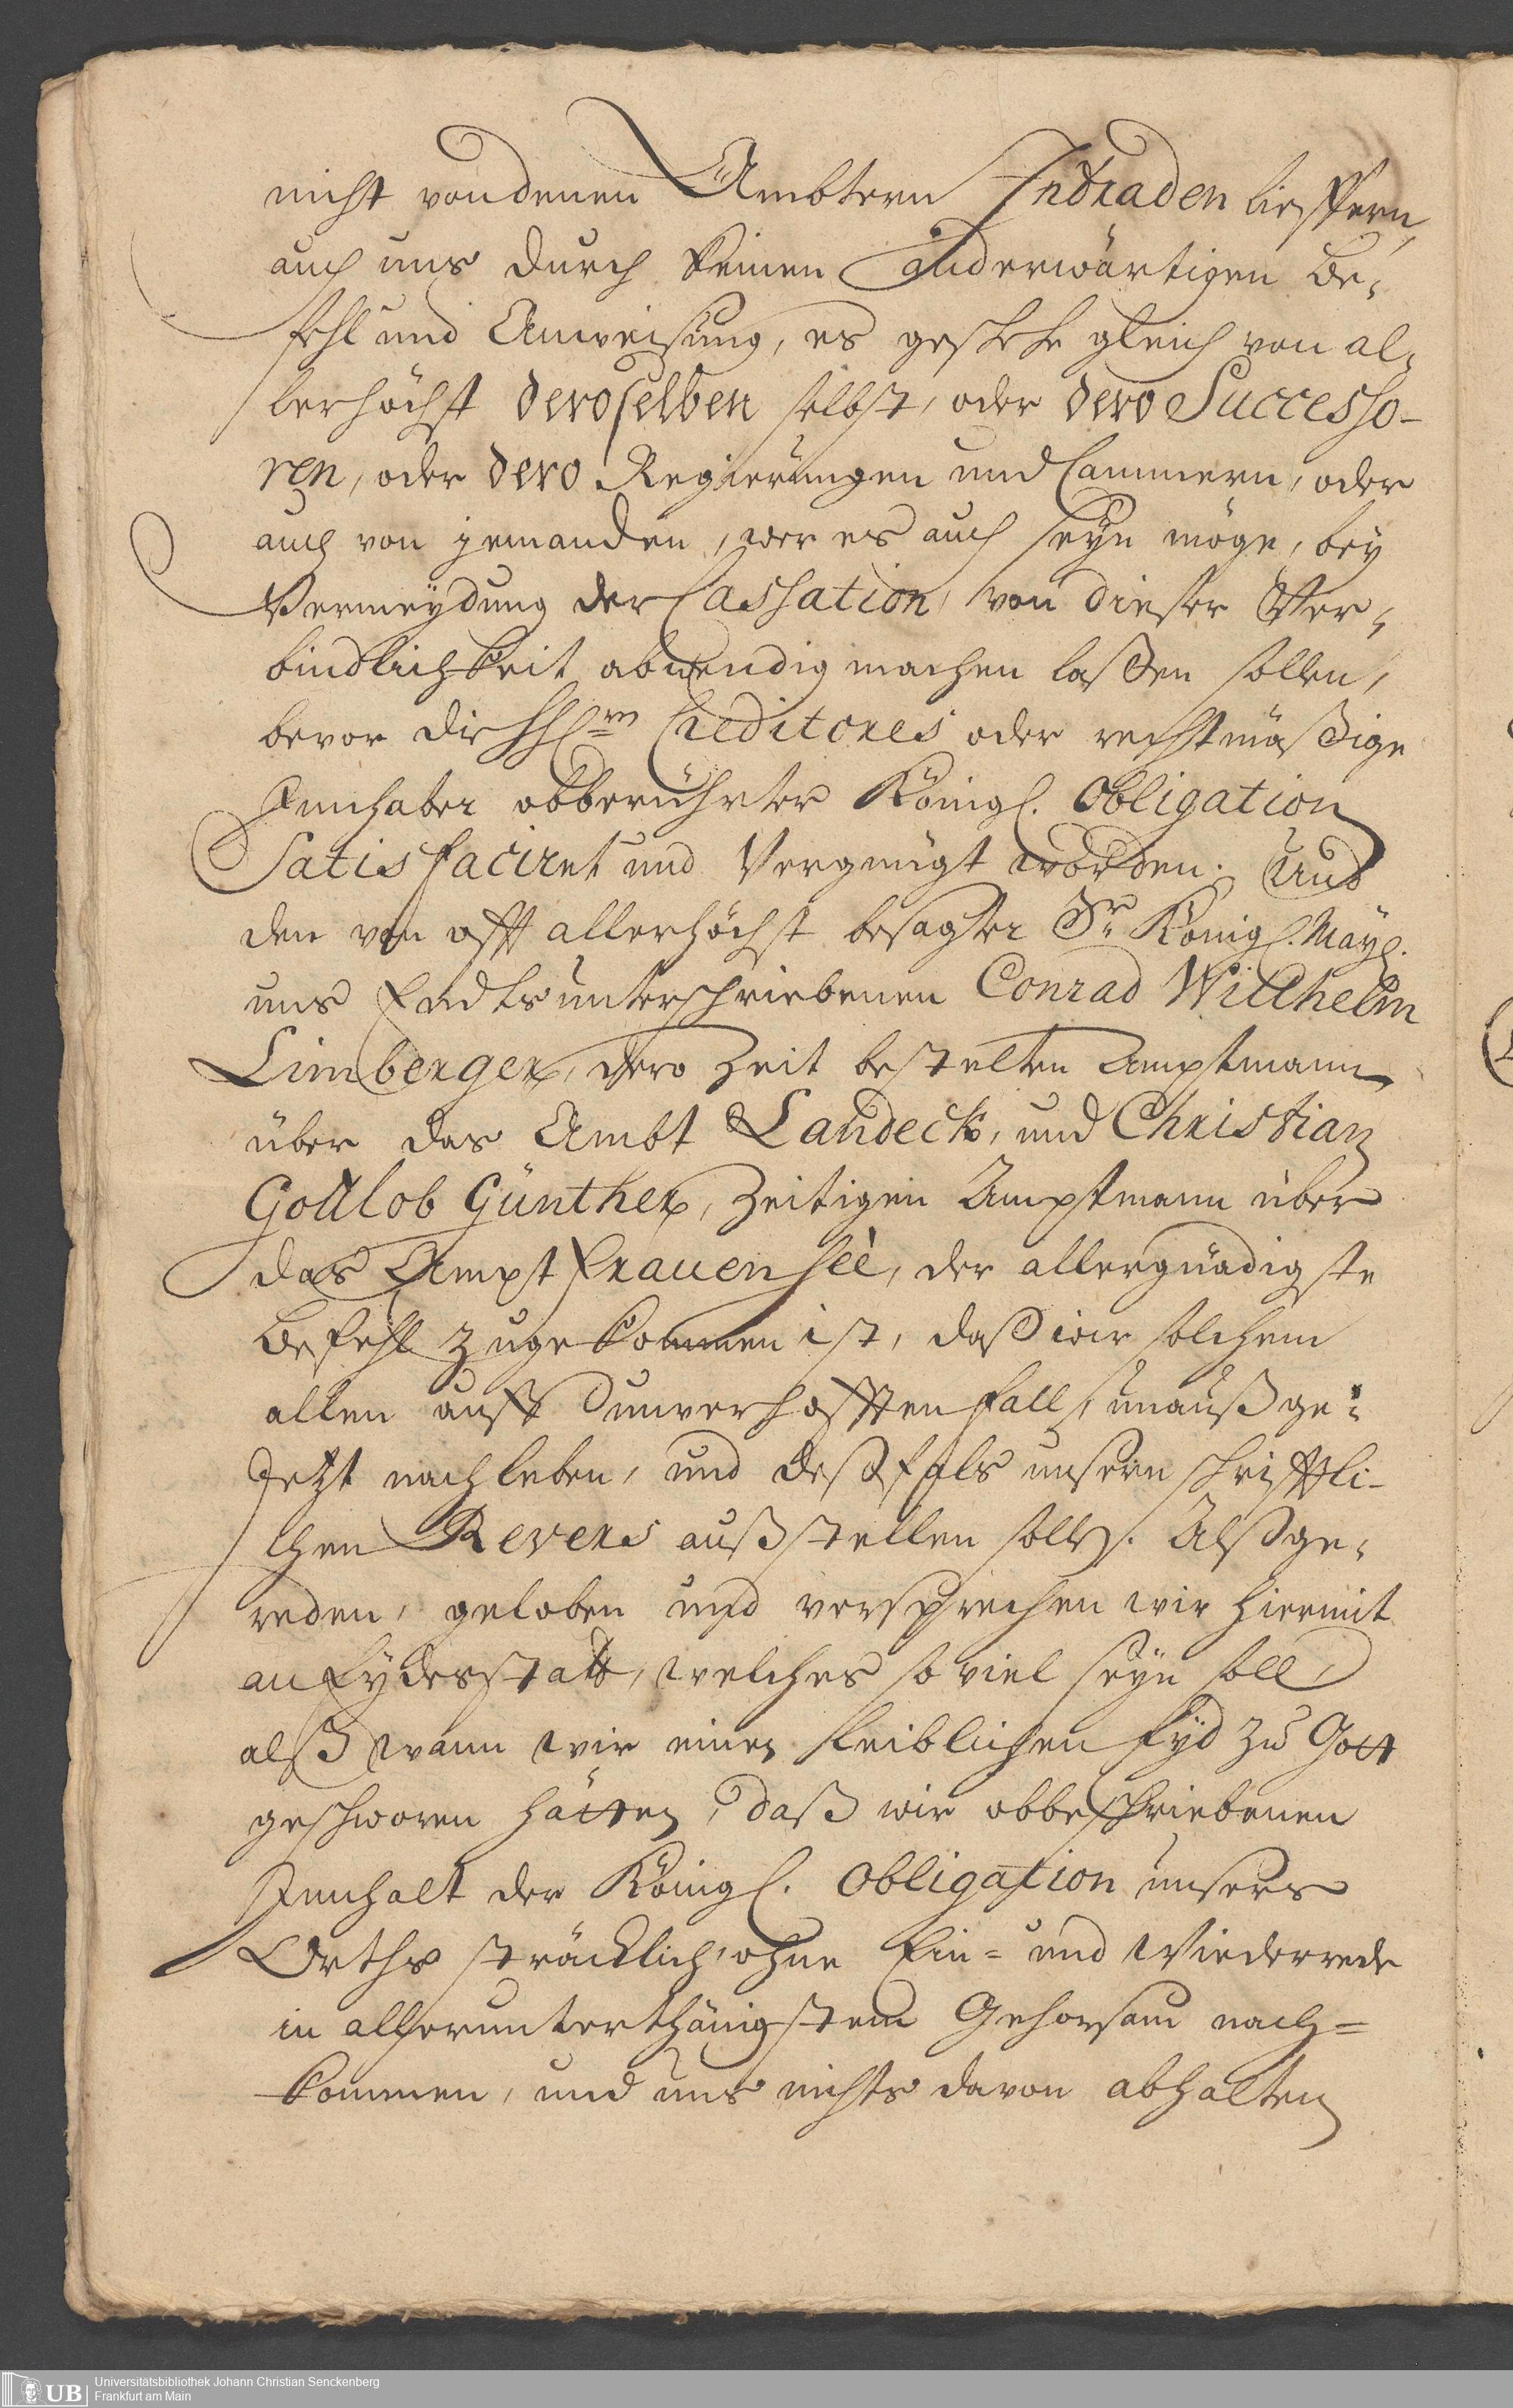 nicht von denen Ämbtern Intraden lieffern,
auch uns durch keinen anderwärtigen Be¬
fehl und Anweisung, es geschehe gleich von al¬
lerhöchst deroselben selbst, oder dero Successo-
ren, oder dero Regierungen und Cammern, oder
auch von jemanden, wer es auch seyn möge, bey
Vermeydung der Cassation, von dieser Ver¬
bindlichkeit abwendig machen laßen sollen,
bevor die HH. Creditores oder rechtmäßige
Innhaber obberührter Königl. Obligation
Satisfaciret und Vergnügt worden. Und
den von offt allerhöchst besagter Sr Königl. Mayl.
uns Endts unterschriebenen Conrad Willhelm
Limberger, dero Zeit bestelten Amptmann
über das Ambt Landeck, und Christian
Gottlob Günther, Zeitigen Amptmann über
das Ampt Frauensee, der allergnädigste
Befehl zugekommen ist, daß wir solchem
allen auff unverhofften Fall, unaußge¬
setzt nachleben, und deßfals unsern schrifftli-
chen Revers außstellen sollen. Alß ge¬
reden, geloben und versprechen wir hiermit
an Eydesstatt, welches so viel seyn soll,
alß wann wir einen leiblichen Eyd zu Gott
geschworen hätten, daß wir obbeschriebenen
Innhalt der Königl. Obligation unsers
Orths sträcklich, ohne Ein- und Wiederrede
in allerunterthänigstem Gehorsam nach=
kommen, und uns nichts davon abhalten
UB Universitätsbibliothek Johann Christian Senckenberg
Frankfurt am Main